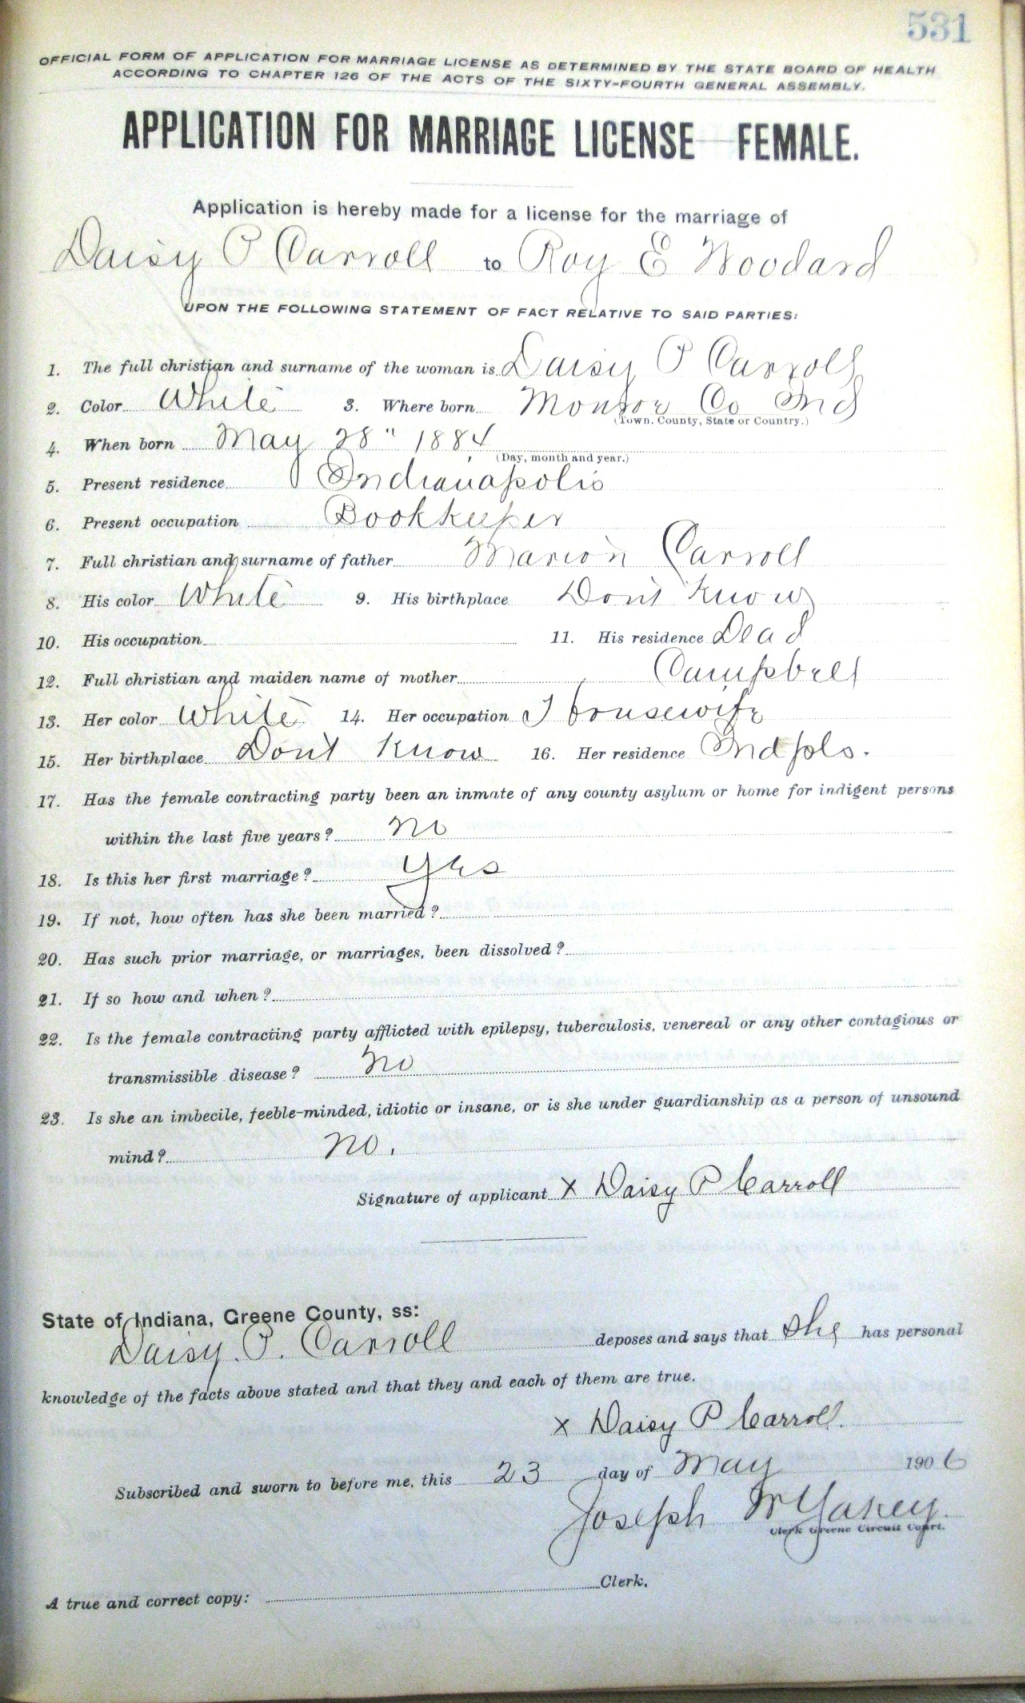 531
OFFICIAL FORM OF APPLICATION FOR MARRIAGE LICENSE AS DETERMINED BY THE STATE BOARD OF HEALTH
ACCORDING TO CHAPTER 126 OF THE ACTS OF THE SIXTY-FOURTH GENERAL ASSEMBLY.
APPLICATION FOR MARRIAGE LICENSE FEMALE.
Application is hereby made for a license for the marriage of
Daisy P Carroll to Roy E Woodard
UPON THE FOLLOWING STATEMENT OF FACT RELATIVE TO SAID PARTIES:
1. The full christian and surname of the woman is Daisy P Carroll
2. Color White 3. Where born Monroe Co Ind
(Town, County, State or Country.)
4. When born May 28" 1884
(Day, month and year.)
5. Present residence Indianapolis
6. Present occupation Bookkeeper
7. Full christian and surname of father Marion Carroll
8. His color White 9. His birthplace Dont Know
10. His occupation 11. His residence Dead
12. Full christian and maiden name of mother Campbell
13. Her color White 14. Her occupation Housewife
15. Her birthplace Dont Know 16. Her residence Indpls.
17. Has the female contracting party been an inmate of any county asylum or home for indigent persons
within the last five years? no
18. Is this her first marriage? yes
19. If not, how often has she been married?
20. Has such prior marriage, or marriages, been dissolved?
21. If so how and when?
22. Is the female contracting party afflicted with epilepsy, tuberculosis, venereal or any other contagious or
transmissible disease? no
23. Is she an imbecile, feeble-minded, idiotic or insane, or is she under guardianship as a person of unsound
mind? no.
Signature of applicant X Daisy P Carroll
State of Indiana, Greene County, ss:
Daisy. P. Carroll deposes and says that she has personal
knowledge of the facts above stated and that they and each of them are true.
X Daisy P Carroll.
Subscribed and sworn to before me, this 23 day of May 1906
Joseph W Yakey.
Clerk Greene Circuit Court.
A true and correct copy: Clerk.